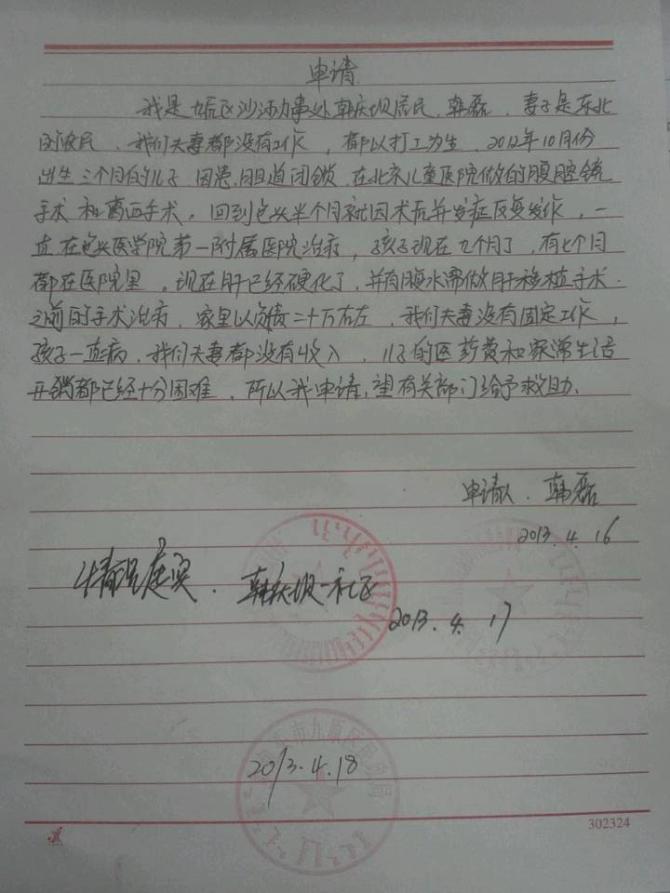 申请
我是九原区沙河办事处韩庆坝居民，韩磊，妻子是东北
的农民，我们夫妻都没有工作，都以打工为生，2012年10月份
出生三个月的儿子，因患，胆道闭锁，在北京儿童医院做的腹腔镜
手术和葛西手术，回到包头半个月就因术后并发症反复发作，一
直在包头医学院第一附属医院治疗，孩子现在九个月了，有七个月
都在医院里，现在肝已经硬化了，并有腹水需做肝移植手术.
之前的手术治病，家里以负债二十万右左，我们夫妻没有固定工作，
孩子一直病，我们夫妻都没有收入，儿子的医药费和家常生活
开销都已经十分困难，所以我申请，望有关部门给予救助.
申请人，韩磊
2013.4.16
情况属实. 韩庆坝一社区
2013.4.17
2013.4.18
302324